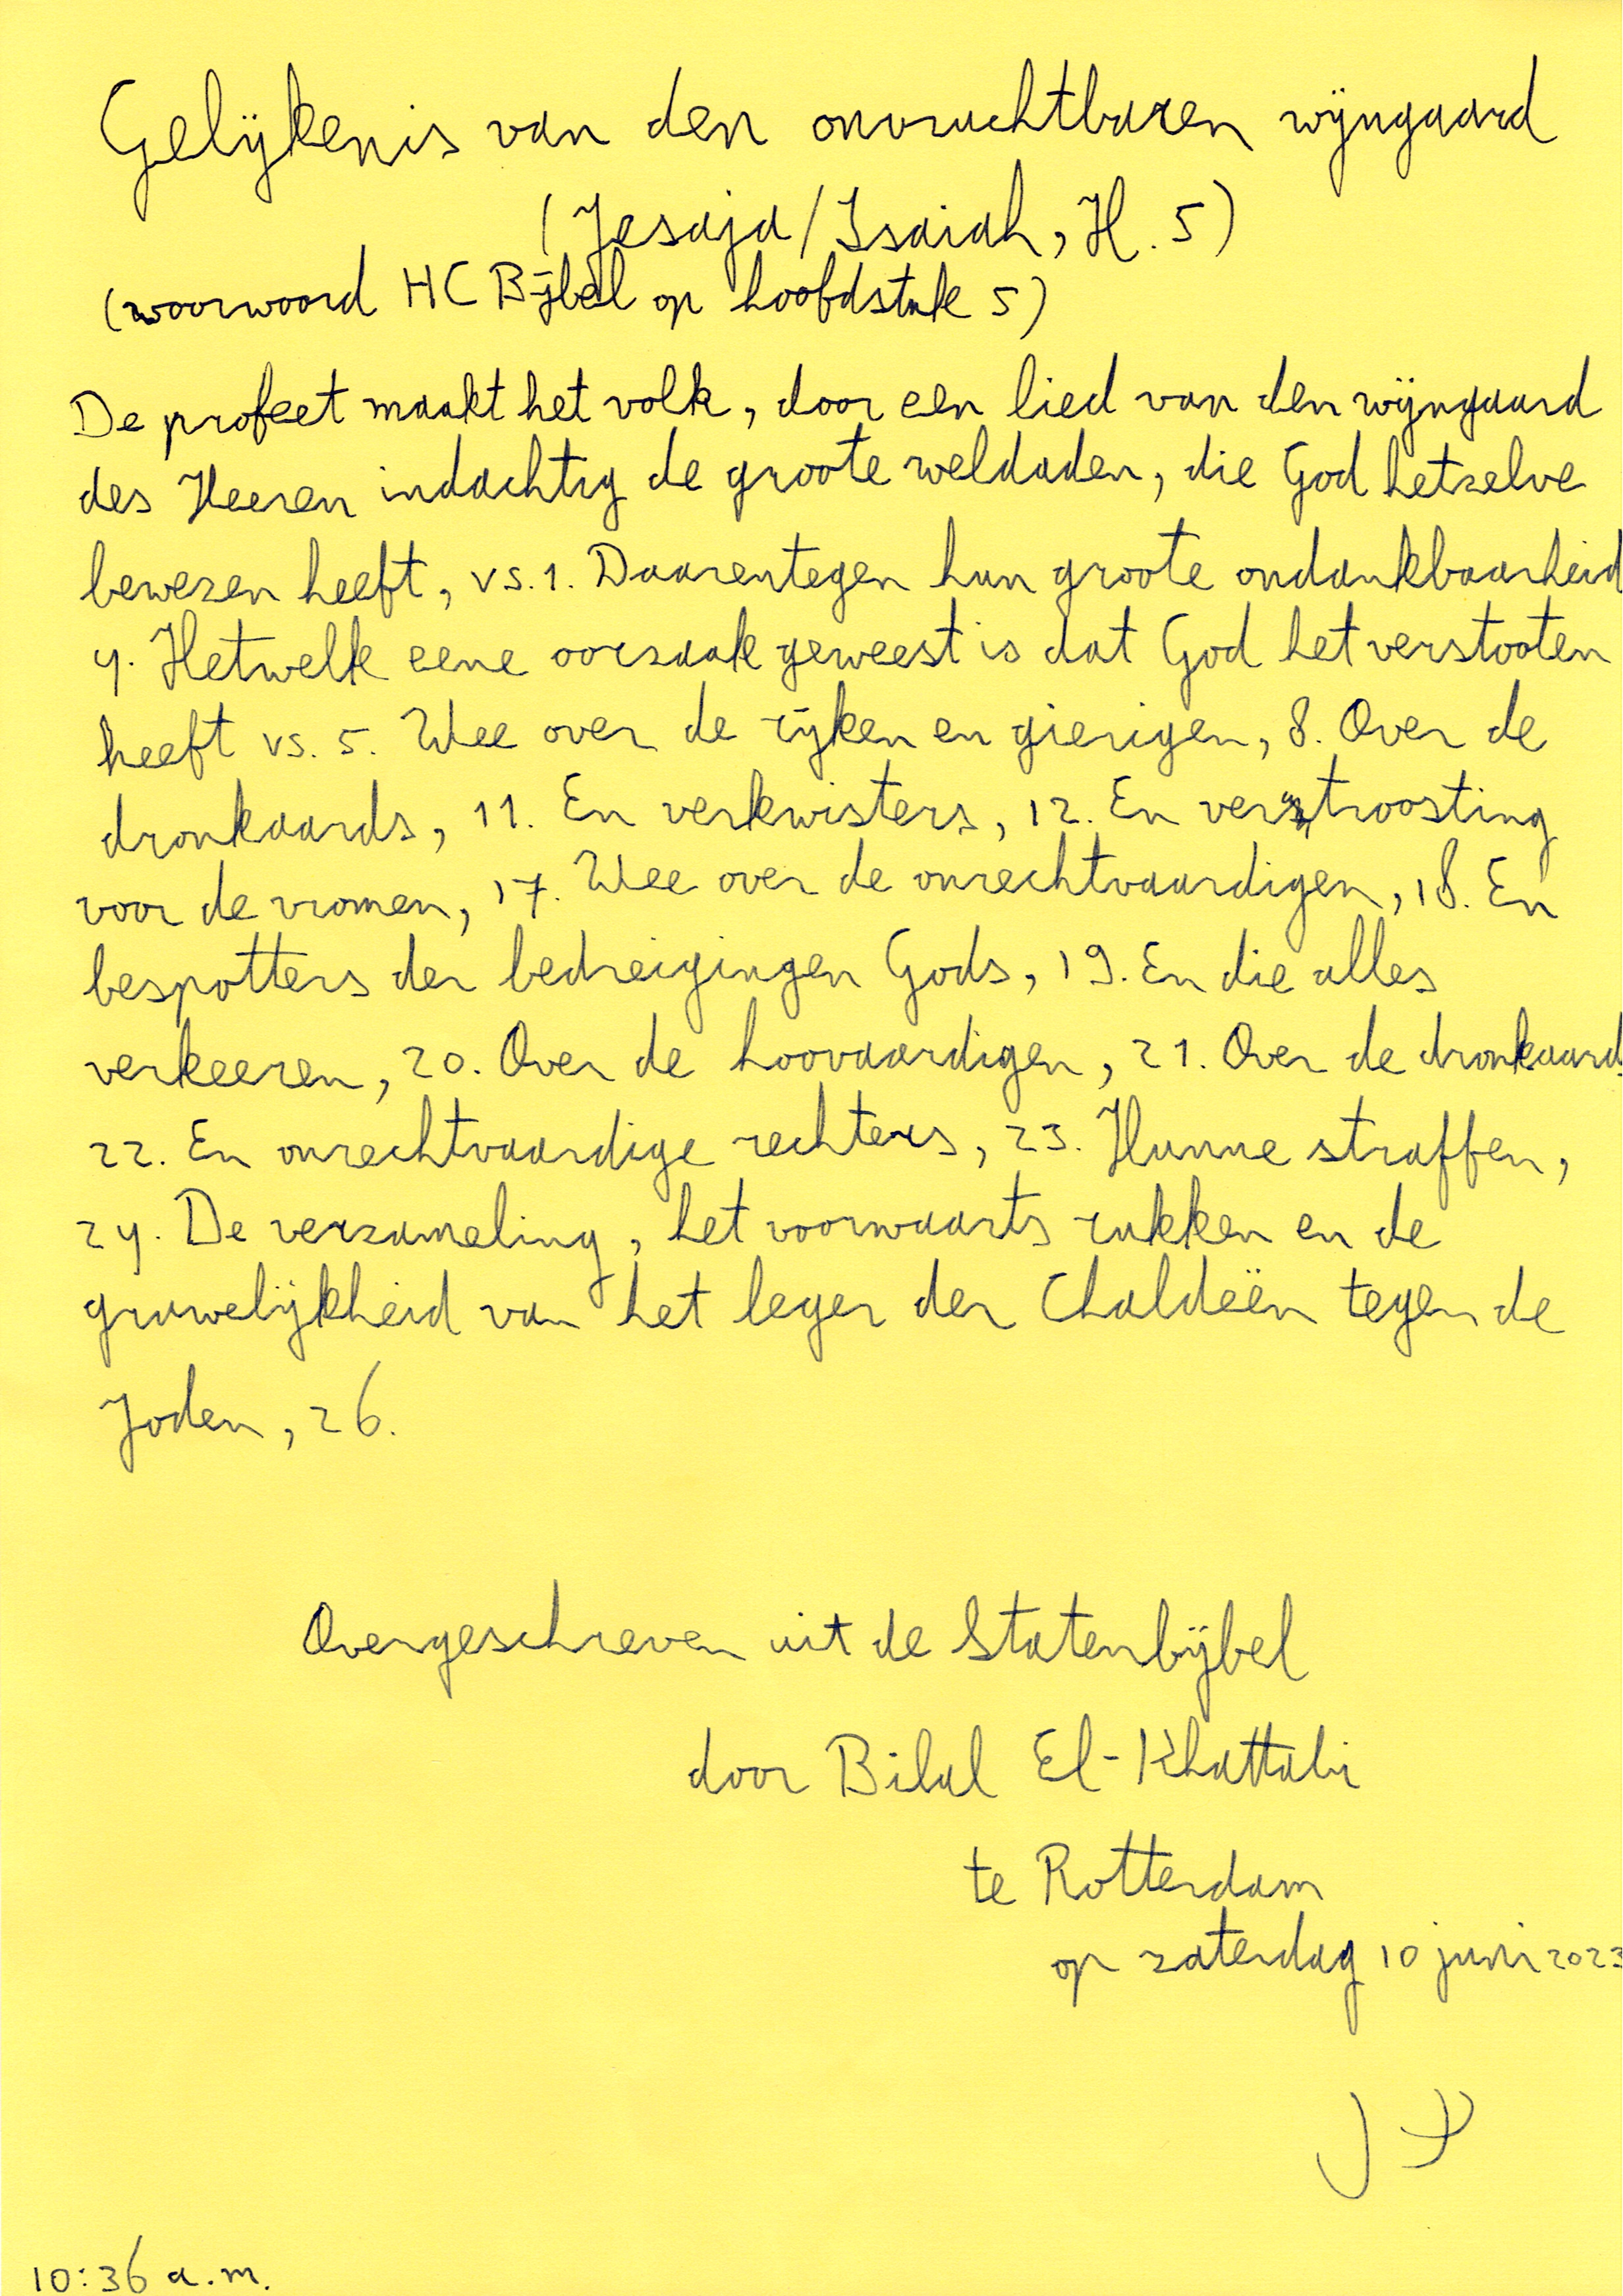 Gelijkenis van den onvruchtbaren wijngaard
(Jesaja/Isaiah, H. 5)
(voorwoord HC Bijbel op hoofdstuk 5)
De profeet maakt het volk, door een lied van den wijngaard
des Heeren indachtig de groote weldaden, die God hetzelve
bewezen heeft, vs. 1. Daarentegen hun groote ondankbaarheid
4. Hetwelk eene oorzaak geweest is dat God het verstooten
heeft vs. 5. Wee over de rijken en gierigen, 8. Over de
dronkaards, 11. En verkwisters, 12. En vertroosting
voor de vromen, 17. Wee over de onrechtvaardigen, 18. En
bespotters der bedreigingen Gods, 19. En die alles
verkeeren, 20. Over de hoovaardigen, 21. Over de dronkaards
22. En onrechtvaardige rechters, 23. Hunne straffen,
24. De verzameling, het voorwaarts rukken en de
gruwelijkheid van het leger der Chaldeën tegen de
Joden, 26.
Overgeschreven uit de Statenbijbel
door Bilal El-Khattabi
te Rotterdam
op zaterdag 10 juni 2023
10:36 a.m.